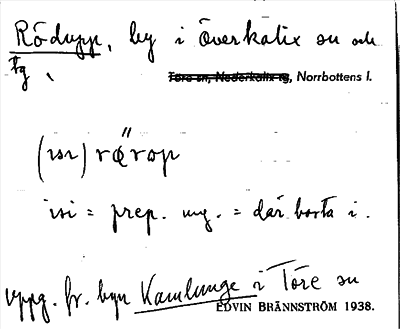 Rödupp, by i Överkalix sn och
tg,
Töre sn, Nederkalix tg, Norrbottens l.
(isi) rø̋rop
isi = prep. ung. = där borta i.
uppg. fr. byn Kamlunge i Töre sn
EDVIN BRÄNNSTRÖM 1938.